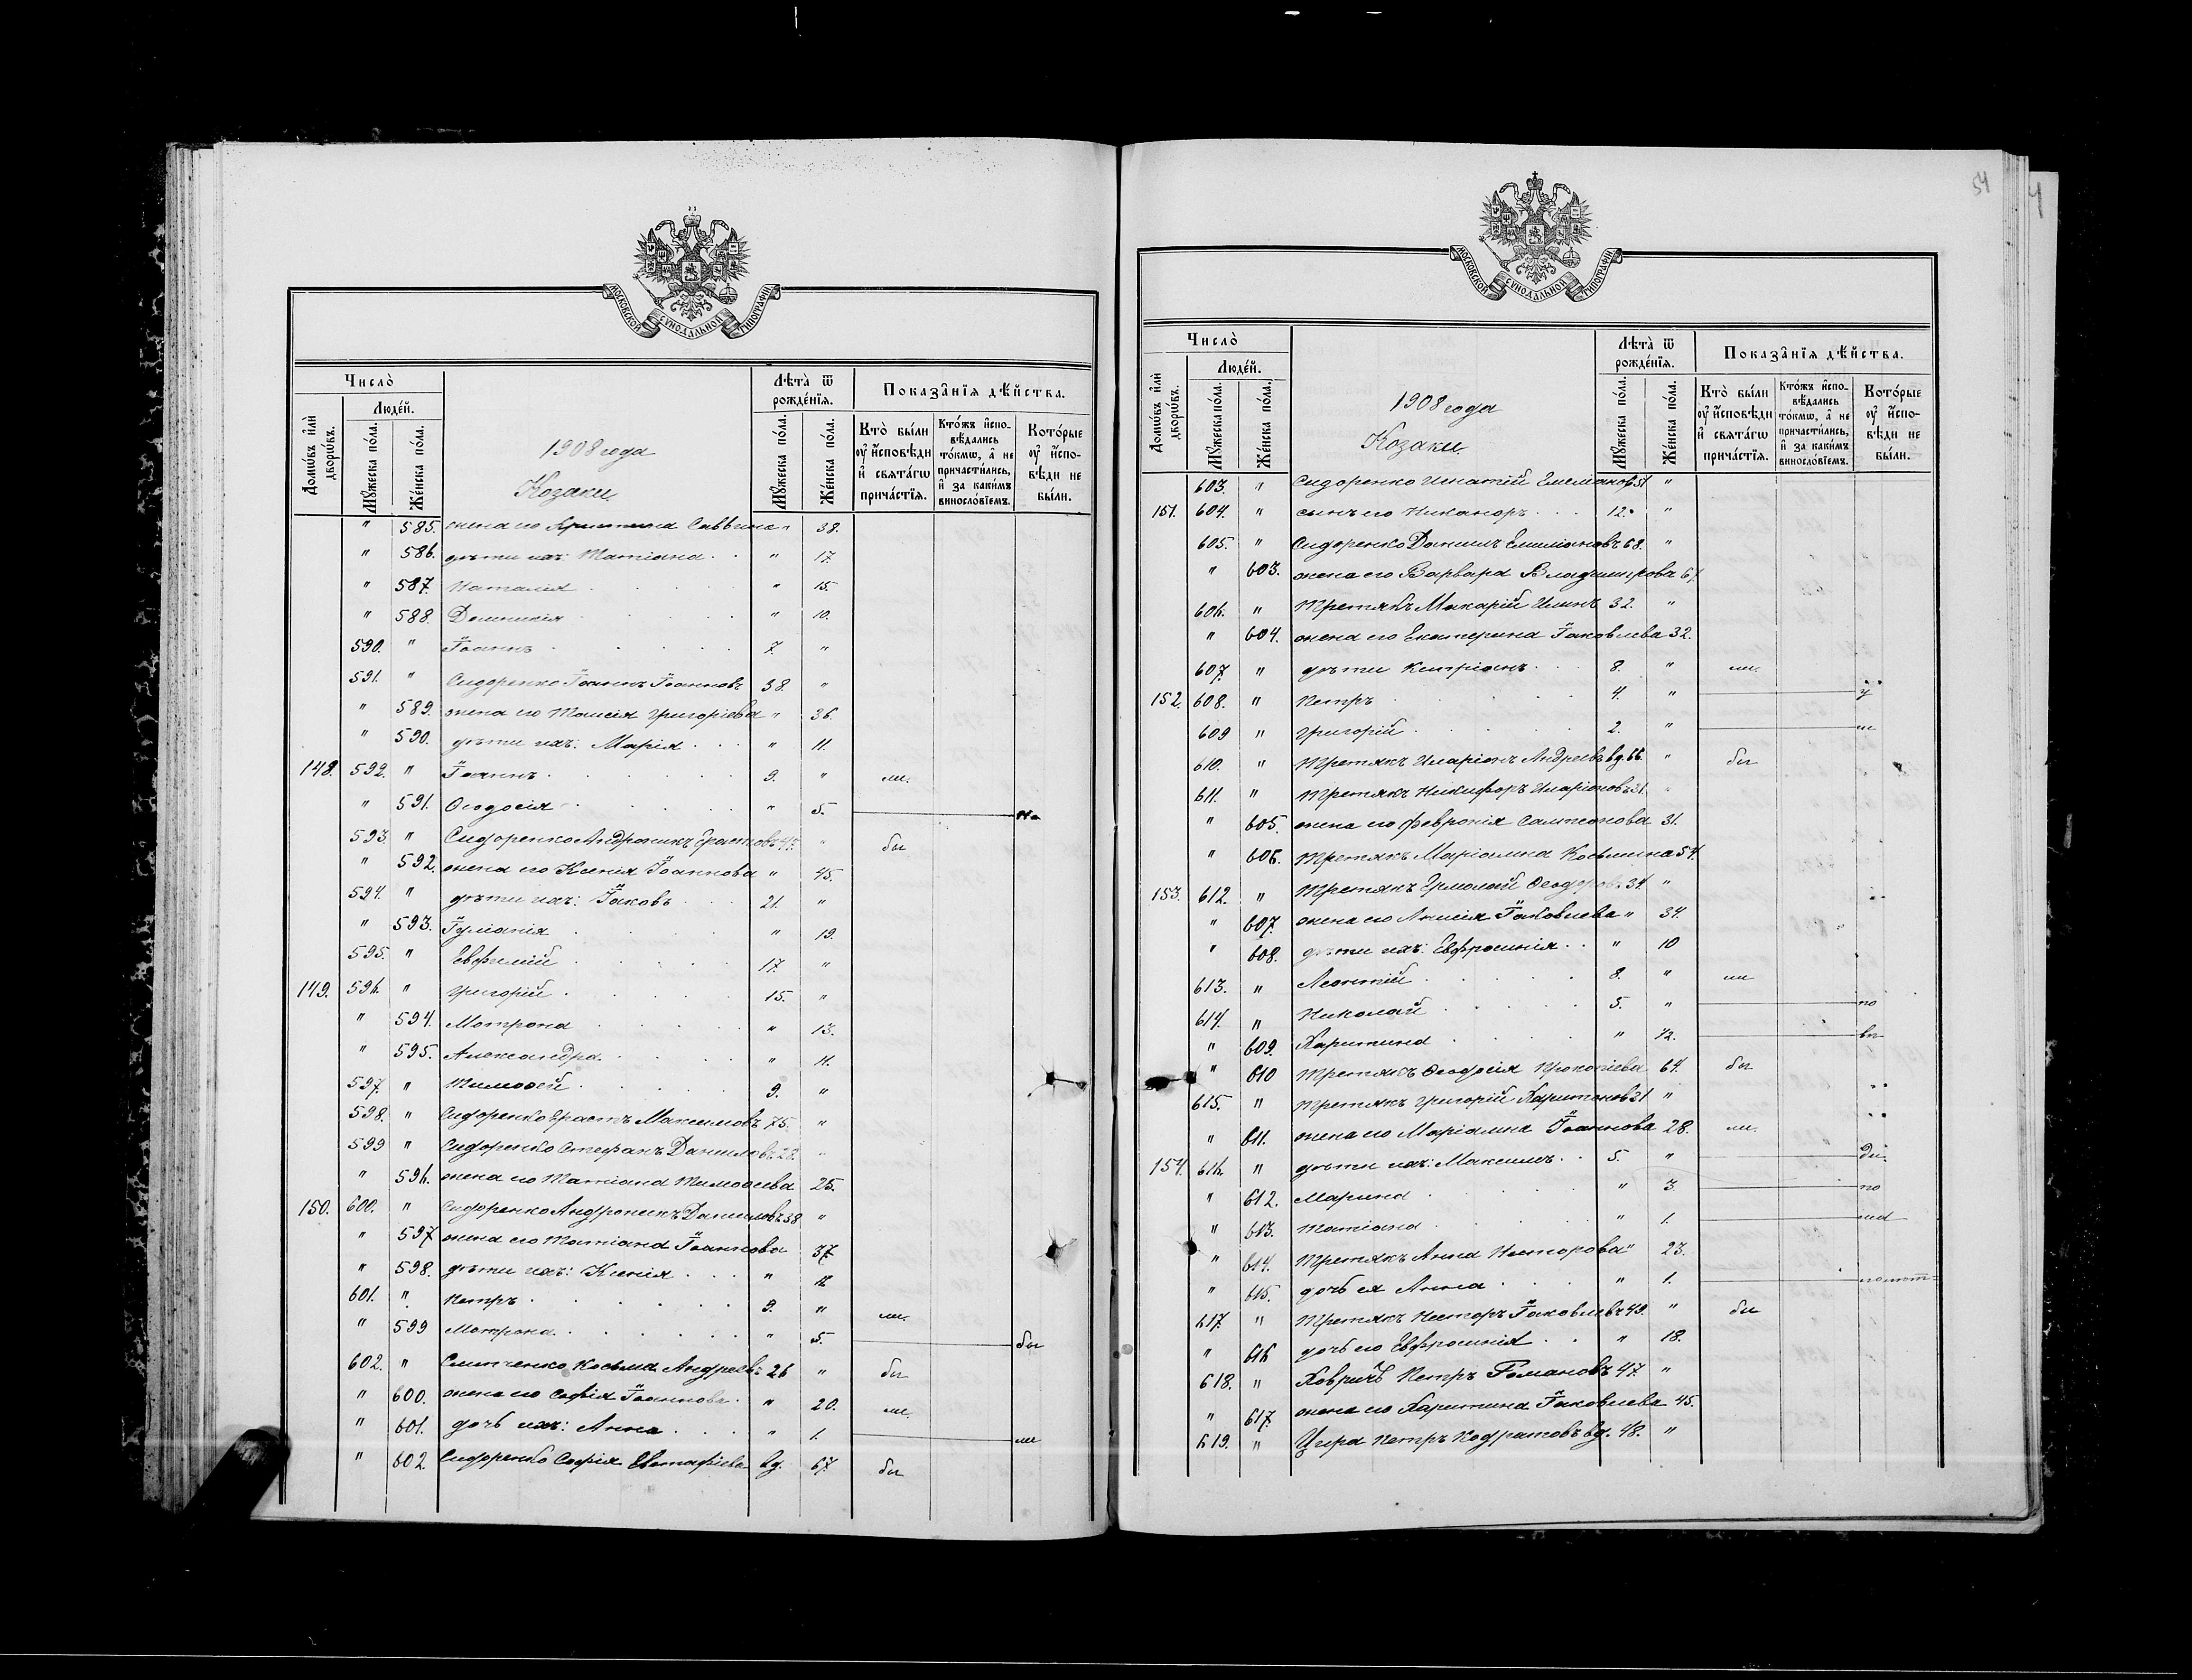 МОСКОВСКОЙ СѴНОДАЛЬНОЙ ТИПОГРАФІИ
Число̀
Домѡ́въ и҆лѝ дворѡ́въ.
Люде́й.
Мꙋ́жеска по́ла.
Же́нска по́ла.
1908 года
Козаки
Лѣта̀ ѿ рожде́нїѧ.
Мꙋ́жеска по́ла.
Же́нска по́ла.
Показа̑нїѧ дѣ́йства.
Кто̀ бы́ли ᲂу҆ и҆́сповѣди и҆ свѧта́гѡ прича́стїѧ.
Кто́жъ и҆спо- вѣ́дались то́кмѡ, а҆ не причасти́лись, и҆ за каки́мъ винослѡ́вїемъ.
Кото́рые ᲂу҆ и҆́спо- вѣди не бы́ли.
" 585. жена его Христина Саввина " 38.
" 586. дѣти ихъ: Татіана . . " 17.
" 587. Наталія . . . " 15.
" 588. Домникія . . " 10.
590. " Іоаннъ . . . . . 7. "
591. " Сидоренко Іоаннъ Іоанновъ 38. "
" 589. жена его Таисія Григоріева " 36.
" 590. дѣти ихъ: Марія . . . " 11.
148. 592. " Іоаннъ . . . . . 9. " ли.
" 591. Ѳеодосія . . . . " 5.
593. " Сидоренко Андроникъ Ерастовъ 45. " бы
" 592. жена его Ксенія Іоаннова " 45.
594. " дѣти ихъ: Іаковъ . . 21. "
" 593. Іуліанія . . . . " 19.
595. " Евфимій . . . . 17. "
149. 596. " Григорій . . . . 15. "
" 594. Матрона . . . . " 13.
" 595. Александра . . . " 11.
597. " Тимоѳей . . . . 9. "
598. " Сидоренко Ерастъ Максимовъ 75. "
599 " Сидоренко Стефанъ Даниловъ 28. "
" 596. жена его Татіана Тимоѳеева 25.
150. 600. " Сидоренко Андроникъ Даниловъ 38 "
" 597 жена его Татіана Іоаннова 37.
" 598. дѣти ихъ: Ксенія . . . " 12
601. " Петръ . . . . . 9. " ли.
" 599 Матрона . . . . . " 5. бы
602. " Слипченко Косьма Андреевъ 26 " бы
" 600. жена его Софія Іоаннова . " 20. ли.
" 601. дочь ихъ: Анна . . . " 1. ли
" 602 Сидоренко Софія Евстафіева вд. 67. бы
54
МОСКОВСКОЙ СѴНОДАЛЬНОЙ ТИПОГРАФІИ
Число̀
Домѡ́въ и҆лѝ дворѡ́въ.
Люде́й.
Мꙋ́жеска по́ла.
Же́нска по́ла.
1908 года
Козаки
Лѣта̀ ѿ рожде́нїѧ.
Мꙋ́жеска по́ла.
Же́нска по́ла.
Показа̑нїѧ дѣ́йства.
Кто̀ бы́ли ᲂу҆ и҆́сповѣди и҆ свѧта́гѡ прича́стїѧ.
Кто́жъ и҆спо- вѣ́дались то́кмѡ, а҆ не причасти́лись, и҆ за каки́мъ винослѡ́вїемъ.
Кото́рые ᲂу҆ и҆́спо- вѣди не бы́ли.
603. " Сидоренко Игнатій Емеліановъ 51 "
151. 604. " сынъ его Никаноръ . . . 12. "
605. " Сидоренко Даниилъ Емиліановъ 68. "
" 603. жена его Варвара Владимірова 67.
606. " Третякъ Макарій Илиинъ 32. "
" 604. жена его Екатерина Іаковлева 32.
607. " дѣти Кипріанъ . . 8. " ли.
152. 608. " Петръ . . . . 4. " у
609 " Григорій . . . . . 2. " ли
610. " Третякъ Иларіонъ Андреевъ вд. 66. " бы
611. " Третякъ Никифоръ Иларіоновъ 31. "
" 605. жена его Февронія Сампсонова 31.
" 606. Третякъ Маріамна Косьмина 54.
153. 612. " Третякъ Ермолай Ѳеодоровъ 34. "
" 607. жена его Анисія Іаковлева " 34.
" 608. дѣти ихъ: Евфросинія . . " 10
613. " Леонтій . . . . 8. " ли
614. " Николай . . . . 5. " по
" 609. Харитина . . . . " ½. вы
" 610 Третякъ Ѳеодосія Прокопіева 64. бы
615. " Третякъ Григорій Харитоновъ 31 "
" 611. жена его Маріамна Іоаннова 28. ли.
154. 616. " дѣти ихъ: Максимъ . . 5. "
" 612. Марина . . . . " 3. по
" 613. Татіана . . . . " 1.
" 614. Третякъ Анна Несторова " 23.
" 615. дочь ея Анна . . . " 1.
617. " Третякъ Несторъ Іаковлевъ 49. " бы
" 616 дочь его Евфросинія . . " 18.
618. " Ховричъ Петръ Романовъ 47. "
" 617. жена его Харитина Іаковлева 45.
619. " Цира Петръ Кодратовъ вд. 48. "